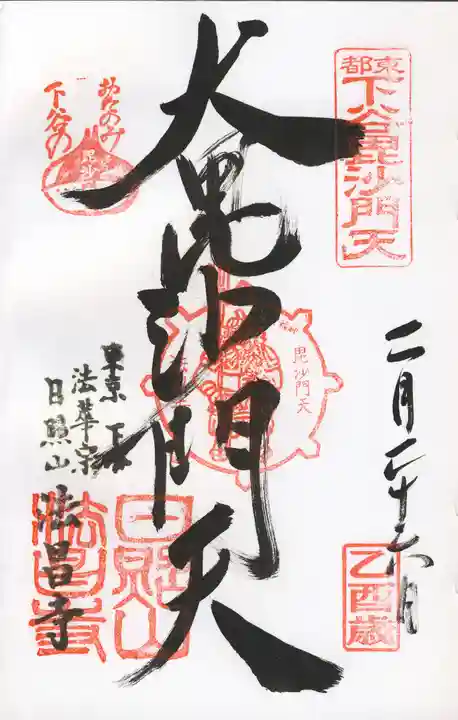 東都
下谷毘沙門天
二月二十六日
乙酉歳
大毘沙門天
毘沙門天
おたのみ
下谷の
毘沙
東京 下谷
法華宗
日照山
法昌寺
日照山
法昌寺